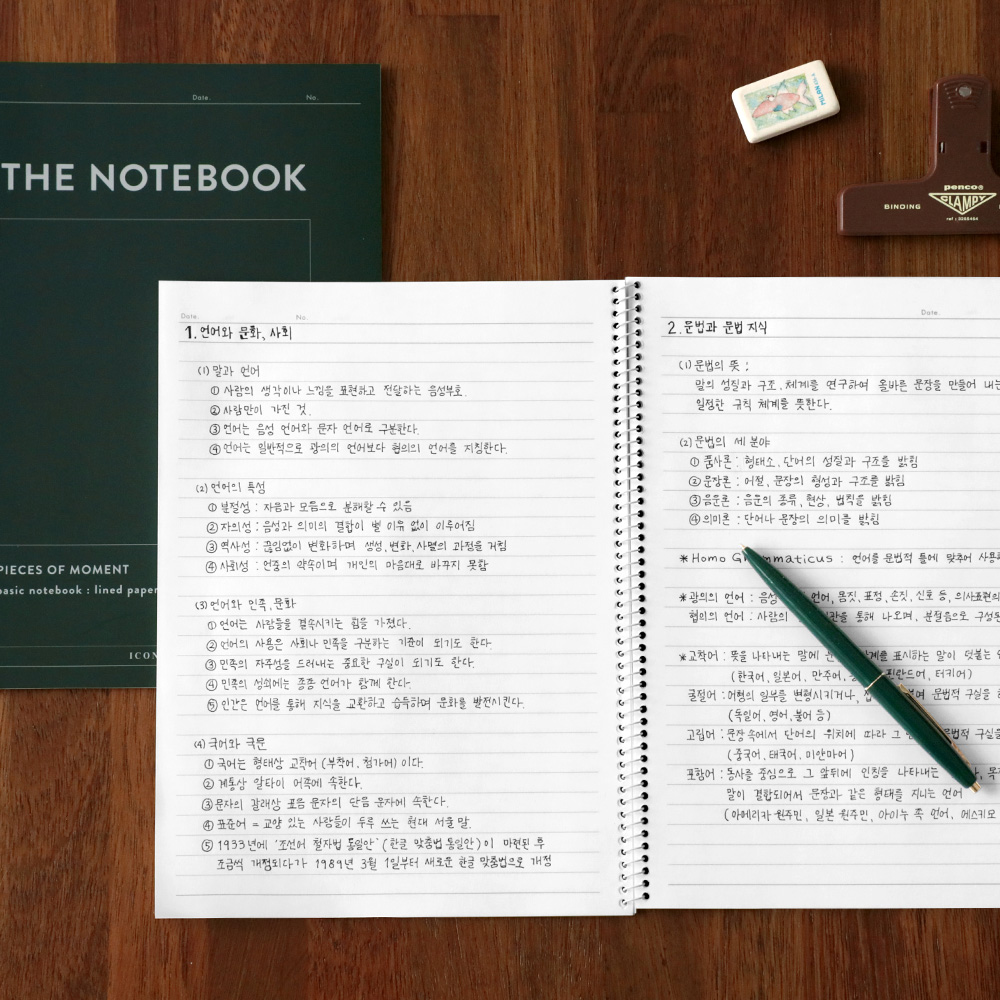 Date.
No.
THE NOTEBOOK
PIECES OF MOMENT
basic notebook : lined paper
ICON
MILAN
penco®
CLAMPY
BINDING
Date.
No.
1. 언어와 문화, 사회
(1) 말과 언어
① 사람의 생각이나 느낌을 표현하고 전달하는 음성부호.
② 사람만이 가진 것.
③ 언어는 음성 언어와 문자 언어로 구분한다.
④ 언어는 일반적으로 광의의 언어보다 협의의 언어를 지칭한다.
(2) 언어의 특성
① 분절성 : 자음과 모음으로 분해할 수 있음
② 자의성 : 음성과 의미의 결합이 별 이유 없이 이루어짐
③ 역사성 : 끊임없이 변화하며 생성, 변화, 사멸의 과정을 거침
④ 사회성 : 언중의 약속이며 개인의 마음대로 바꾸지 못함
(3) 언어와 민족, 문화
① 언어는 사람들을 결속시키는 힘을 가졌다.
② 언어의 사용은 사회나 민족을 구분하는 기준이 되기도 한다.
③ 민족의 자주성을 드러내는 중요한 구실이 되기도 한다.
④ 민족의 성쇠에는 종종 언어가 함께 한다.
⑤ 인간은 언어를 통해 지식을 교환하고 습득하며 문화를 발전시킨다.
(4) 국어와 국문
① 국어는 형태상 교착어 (부착어, 첨가어) 이다.
② 계통상 알타이 어족에 속한다.
③ 문자의 갈래상 표음 문자의 단음 문자에 속한다.
④ 표준어 = 교양 있는 사람들이 두루 쓰는 현대 서울 말.
⑤ 1933년에 '조선어 철자법 통일안' (한글 맞춤법 통일안) 이 마련된 후
조금씩 개정되다가 1989년 3월 1일부터 새로운 한글 맞춤법으로 개정
Date.
2. 문법과 문법 지식
(1) 문법의 뜻 :
말의 성질과 구조, 체계를 연구하여 올바른 문장을 만들어 내는
일정한 규칙 체계를 뜻한다.
(2) 문법의 세 분야
① 품사론 : 형태소, 단어의 성질과 구조를 밝힘
② 문장론 : 어절, 문장의 형성과 구조를 밝힘
③ 음운론 : 음운의 종류, 현상, 법칙을 밝힘
④ 의미론 : 단어나 문장의 의미를 밝힘
* Homo Grammaticus : 언어를 문법적 틀에 맞추어 사용
* 광의의 언어 : 음성 언어, 몸짓, 표정, 손짓, 신호 등, 의사표현의
협의의 언어 : 사람의 통해 나오며, 분절음으로 구성된
* 교착어 : 뜻을 나타내는 말에 관계를 표시하는 말이 덧붙는
(한국어, 일본어, 만주어, 핀란드어, 터키어)
굴절어 : 어형의 일부를 변형시키거나, 문법적 구실을
(독일어, 영어, 불어 등)
고립어 : 문장 속에서 단어의 위치에 따라 그 문법적 구실을
(중국어, 태국어, 미얀마어)
포함어 : 동사를 중심으로 그 앞뒤에 인칭을 나타내는
말이 결합되어서 문장과 같은 형태를 지니는 언어
(아메리카 원주민, 일본 원주민, 아이누 족 언어, 에스키모